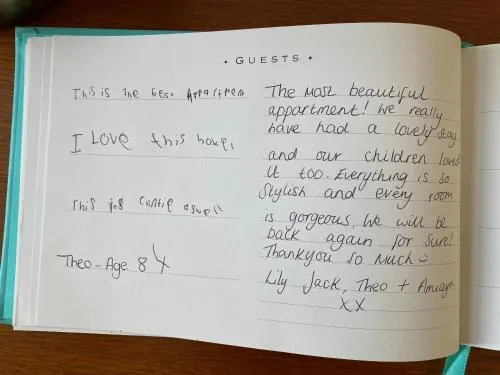 • GUESTS •
This is the Best Appartmen
I Love this house,
This is
aswell
Theo - Age 8 X
The most beautiful
appartment! We really
have had a lovely stay
and our children loved
it too. Everything is so
stylish and every room
is gorgeous, We will be
back again for sure!
Thankyou so much :)
Lily Jack, Theo +
XX